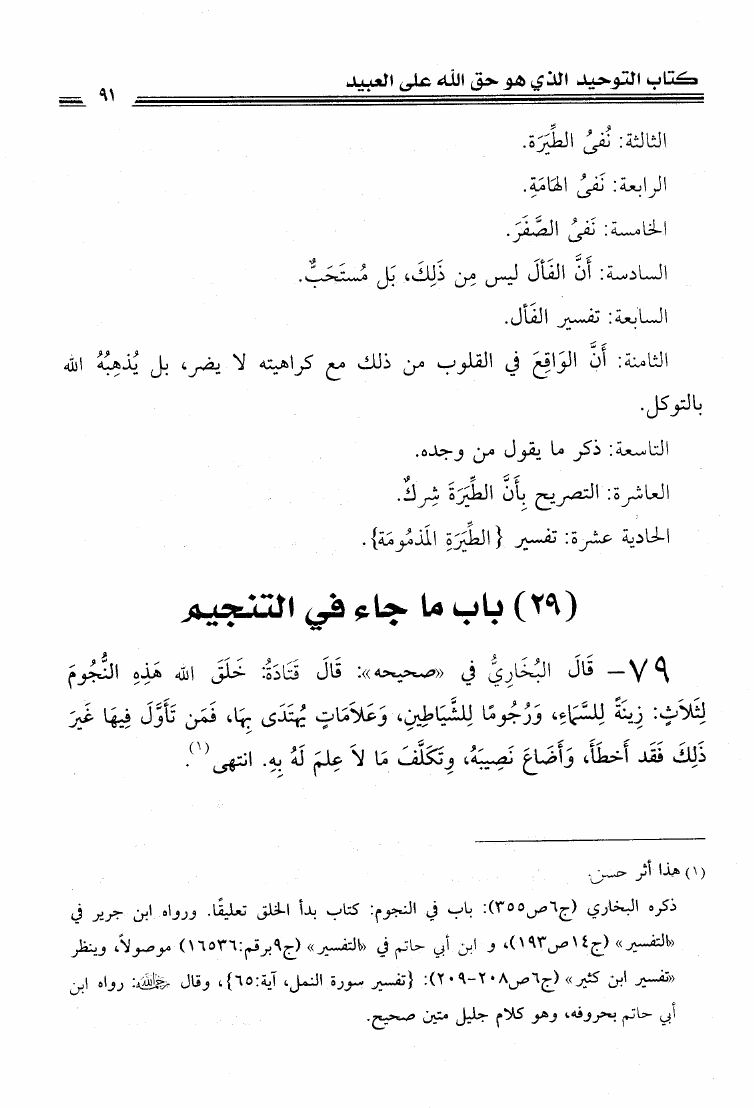 كتاب التوحيد الذي هو حق الله على العبيد ٩١
الثالثة: نُفيُ الطِّيَرَة.
الرابعة: نَفيُ الهَامَةِ.
الخامسة: نَفيُ الصَّفَرَ.
السادسة: أَنَّ الفَألَ ليس مِن ذَلِكَ، بَل مُستَحَبٌّ.
السابعة: تفسير الفَأل.
الثامنة: أَنَّ الوَاقِعَ في القلوب من ذلك مع كراهيته لا يضر، بل يُذهِبُهُ الله
بالتوكل.
التاسعة: ذكر ما يقول من وجده.
العاشرة: التصريح بِأَنَّ الطِّيَرَةَ شِركٌ.
الحادية عشرة: تفسير {الطِّيَرَةِ المَذمُومَة}.
(٢٩) باب ما جاء في التنجيم
٧٩- قَالَ البُخَارِيُّ في «صحيحه»: قَالَ قَتَادَةُ: خَلَقَ الله هَذِهِ النُّجُومَ
لِثَلَاثٍ: زِينَةً لِلسَّمَاءِ، وَرُجُومًا لِلشَّيَاطِينِ، وَعَلَامَاتٍ يُهتَدَى بِهَا، فَمَن تَأَوَّلَ فِيهَا غَيرَ
ذَلِكَ فَقَد أَخطَأَ، وَأَضَاعَ نَصِيبَهُ، وتَكَلَّفَ مَا لاَ عِلمَ لَهُ بِهِ. انتهى(١).
(١) هذا أثر حسن.
ذكره البخاري (ج٦ص٣٥٥): باب في النجوم: كتاب بدأ الخلق تعليقًا. ورواه ابن جرير في
«التفسير» (ج١٤ص١٩٣)، و ابن أبي حاتم في «التفسير» (ج٩برقم:١٦٥٣٦) موصولاً، وينظر
«تفسير ابن كثير» (ج٦ص٢٠٨-٢٠٩): {تفسير سورة النمل، آية:٦٥}، وقال رحمه الله: رواه ابن
أبي حاتم بحروفه، وهو كلام جليل متين صحيح.